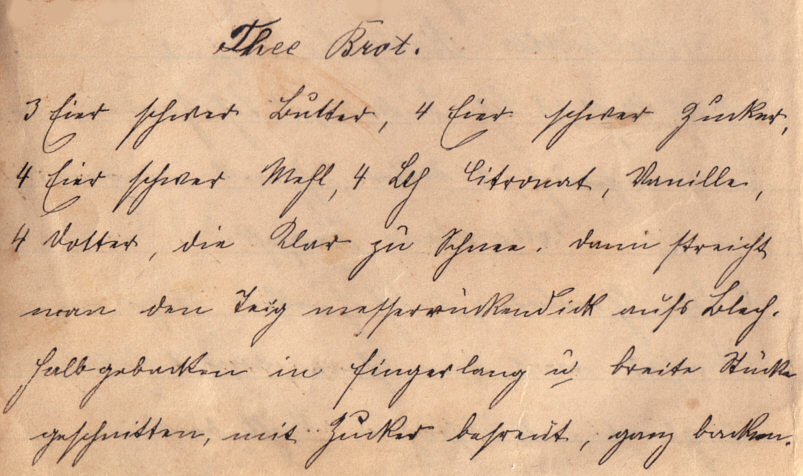 Thee Brot.
3 Eier schwer Butter, 4 Eier schwer Zucker,
4 Eier schwer Mehl, 4 Lth Citronat, Vanille,
4 Dotter, die Klar zu Schnee. Dann streicht
man den Teig messerrückendick aufs Blech.
Halbgebacken in fingerlang u breite Stücke
geschnitten, mit Zucker bestreut, ganz backen.